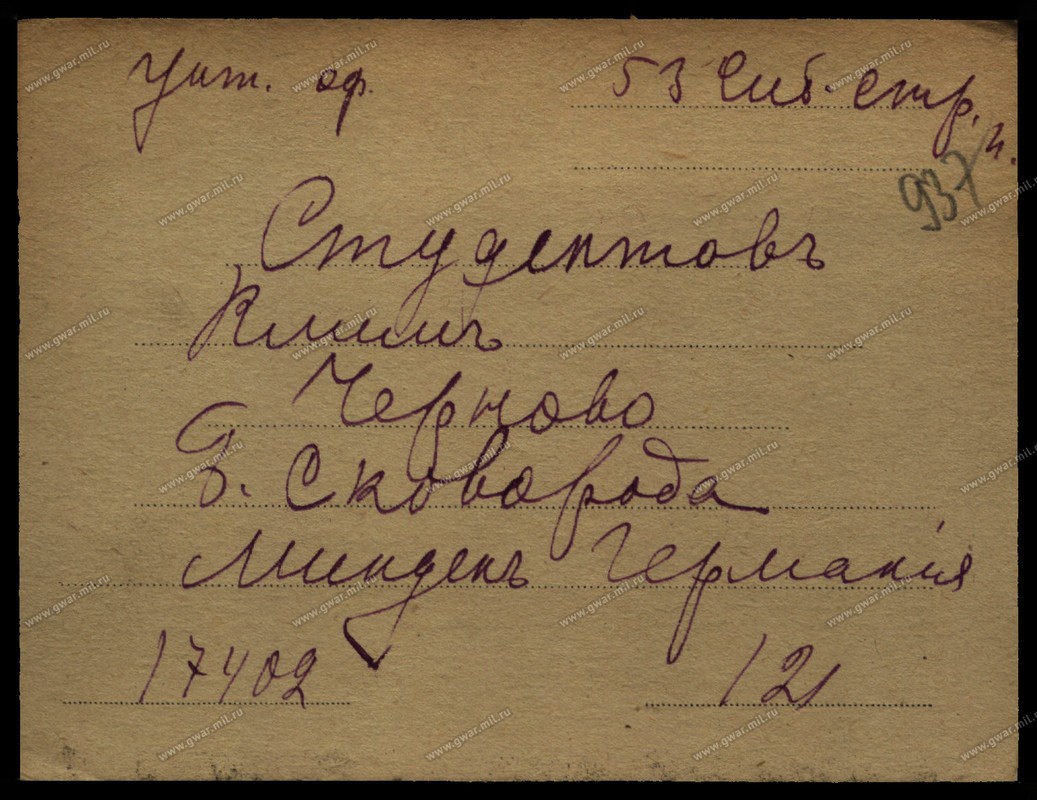 Унт. оф. 53 Сиб. стр. п.
937
Студентовъ
Климъ
Черново
Б. Сковорода
Минденъ Германія
17402 121
www.gwar.mil.ru